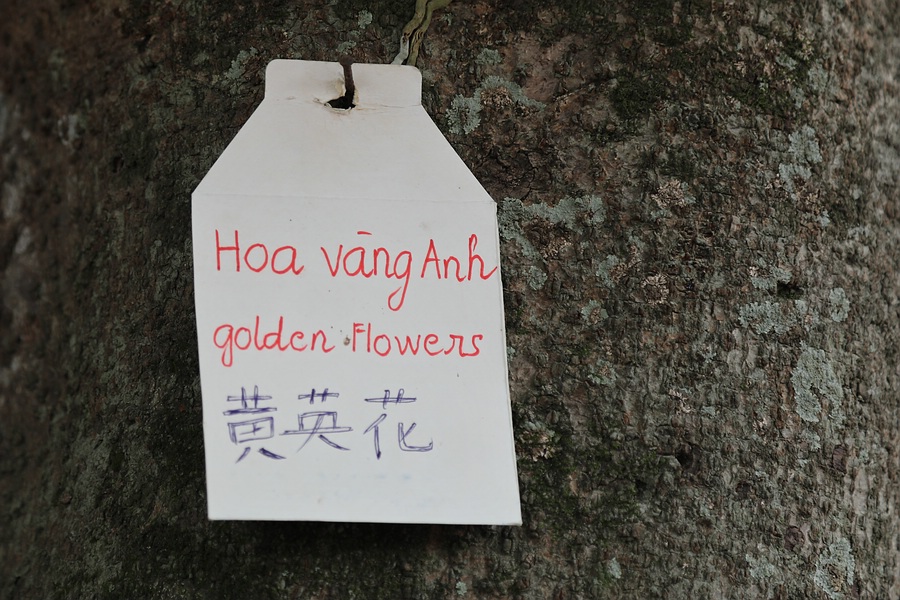 Hoa vāng Anh
golden Flowers
黄英花